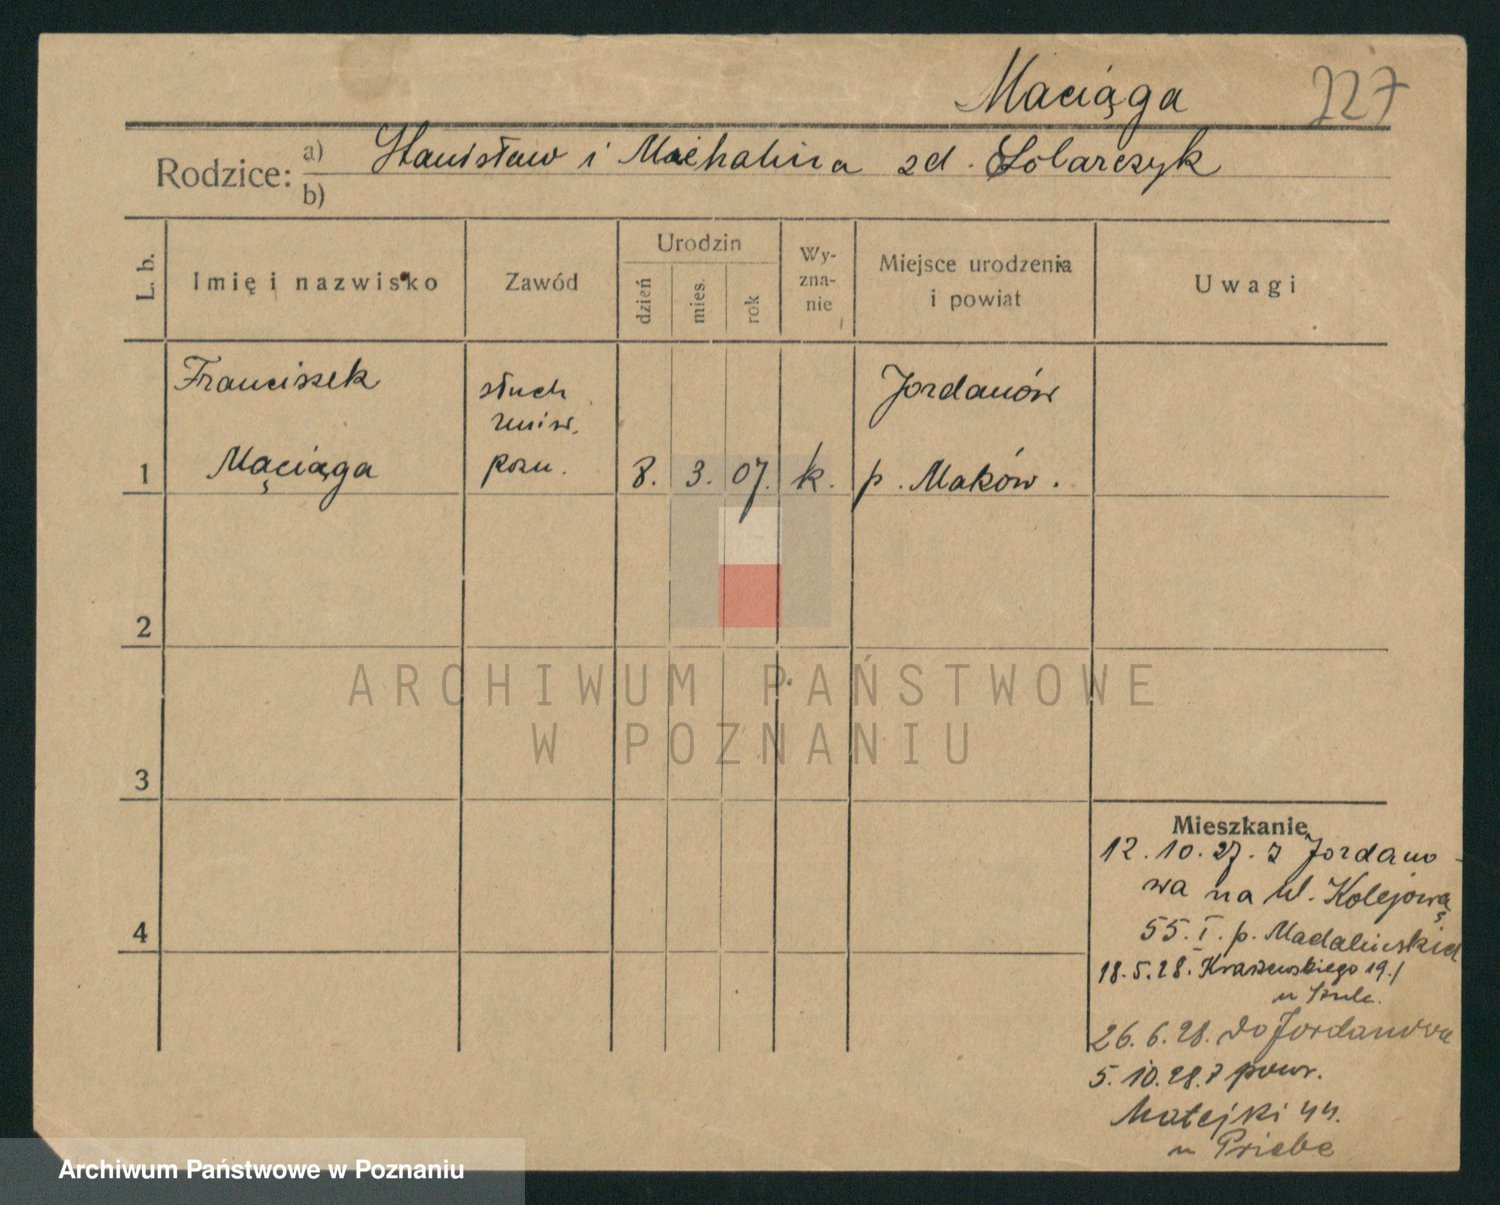 Maciąga 227
Rodzice: a) Stanisław i Michalina zd. Solarczyk
b)
L. b. Imię i nazwisko Zawód Urodzin dzień mies. rok Wy-zna-nie Miejsce urodzenia i powiat Uwagi
Franciszek słuch Jordanów
uniw.
1 Maciąga pozn. 8. 3. 07. k. p. Maków.
2
ARCHIWUM PAŃSTWOWE
W POZNANIU
3
Mieszkanie
12.10.27. z Jordano-
wa na ul. Kolejową
55. I. p. Madalińskiej
18.5.28. Kraszewskiego 19.1
u
4
26.6.28. do Jordanowa
5.10.28. z powr.
Matejki 44.
u Priebe
Archiwum Państwowe w Poznaniu